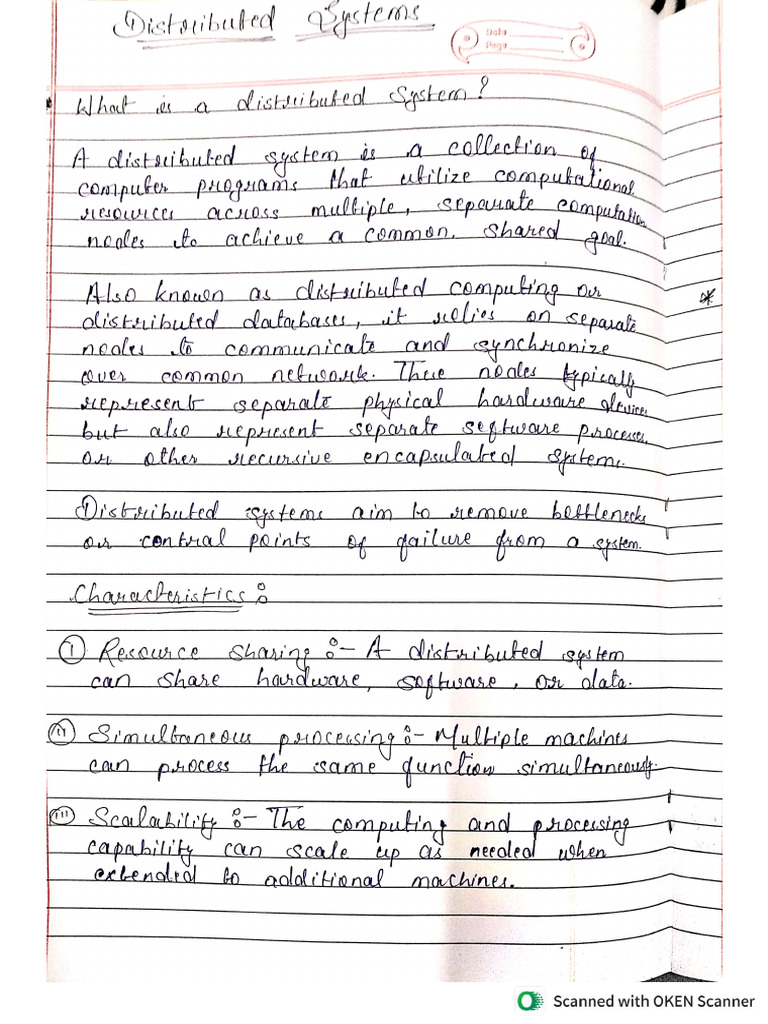 Distributed Systems
Date
Page
What is a distributed system?
A distributed system is a collection of
computer programs that utilize computational
resources across multiple, separate computation
nodes to achieve a common, shared goal.
Also known as distributed computing or
distributed databases, it relies on separate
nodes to communicate and synchronize
over common network. These nodes typically
represent separate physical hardware devices
but also represent separate software processes
or other recursive encapsulated systems.
Distributed systems aim to remove bottlenecks
or central points of failure from a system.
Characteristics :
(i) Resource Sharing :- A distributed system
can share hardware, software, or data.
(ii) Simultaneous processing :- Multiple machines
can process the same function simultaneously.
(iii) Scalability :- The computing and processing
capability can scale up as needed when
extended to additional machines.
Scanned with OKEN Scanner